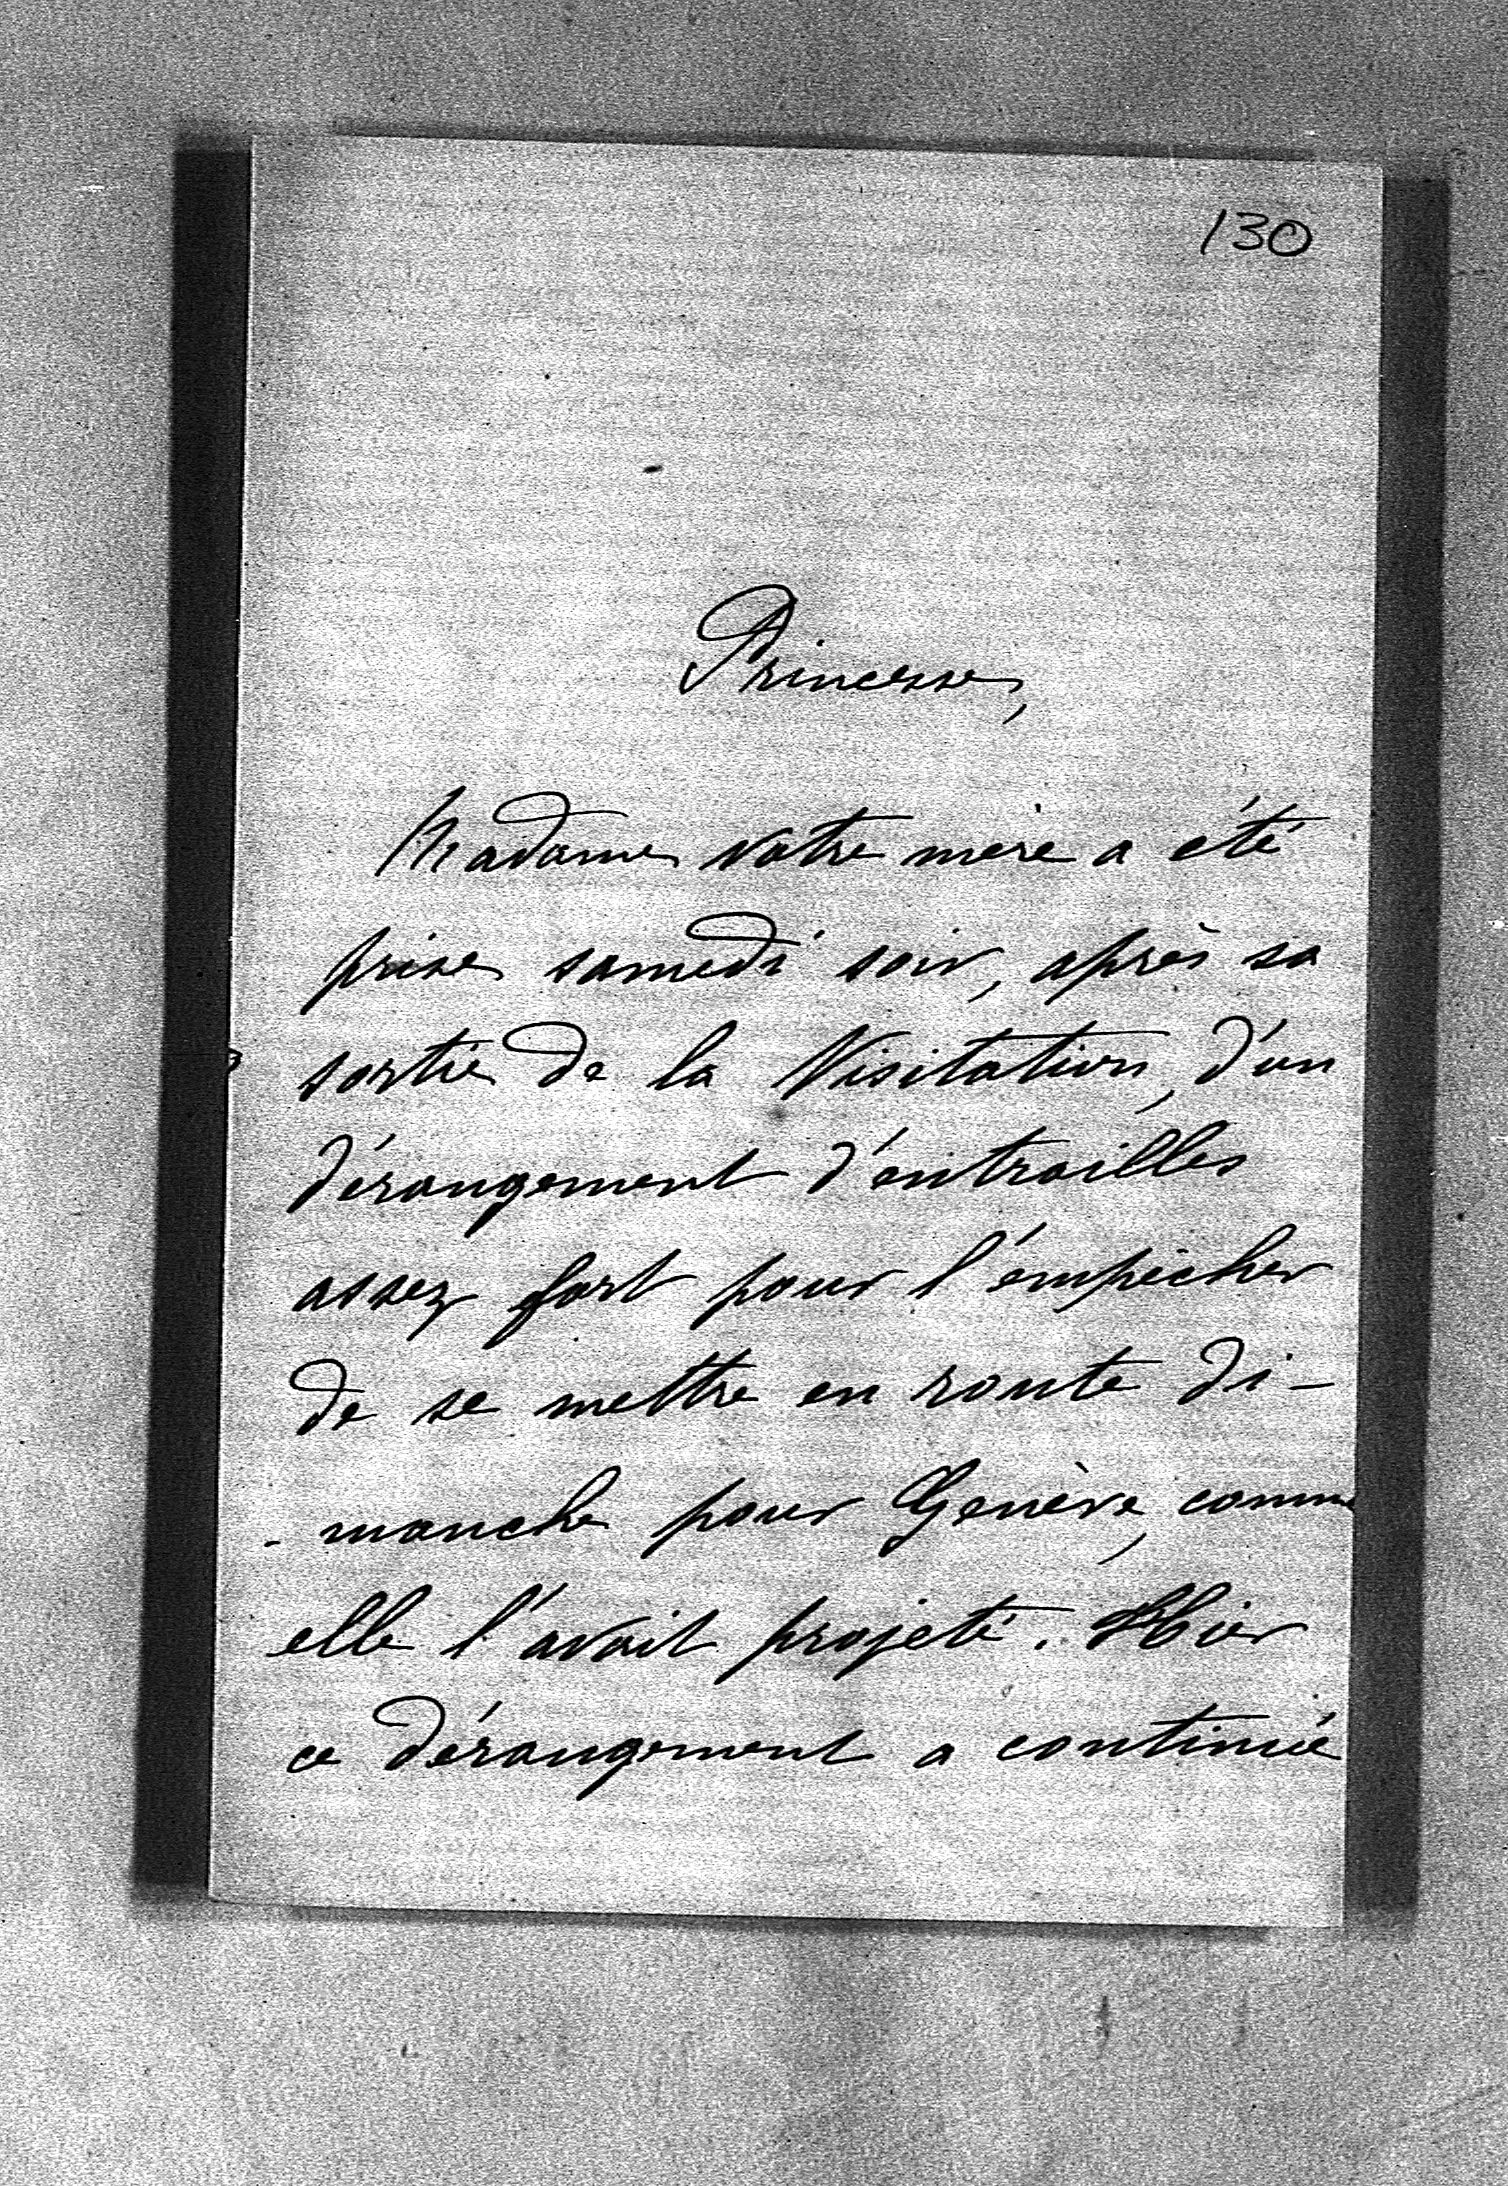 130
Princesse,
Madame votre mère a été
prise samedi soir, après sa
sortie de la Visitation, d'un
dérangement d'entrailles
assez fort pour l'empêcher
de se mettre en route di-
- manche pour Genève, comme
elle l'avait projeté. Hier
ce dérangement a continué